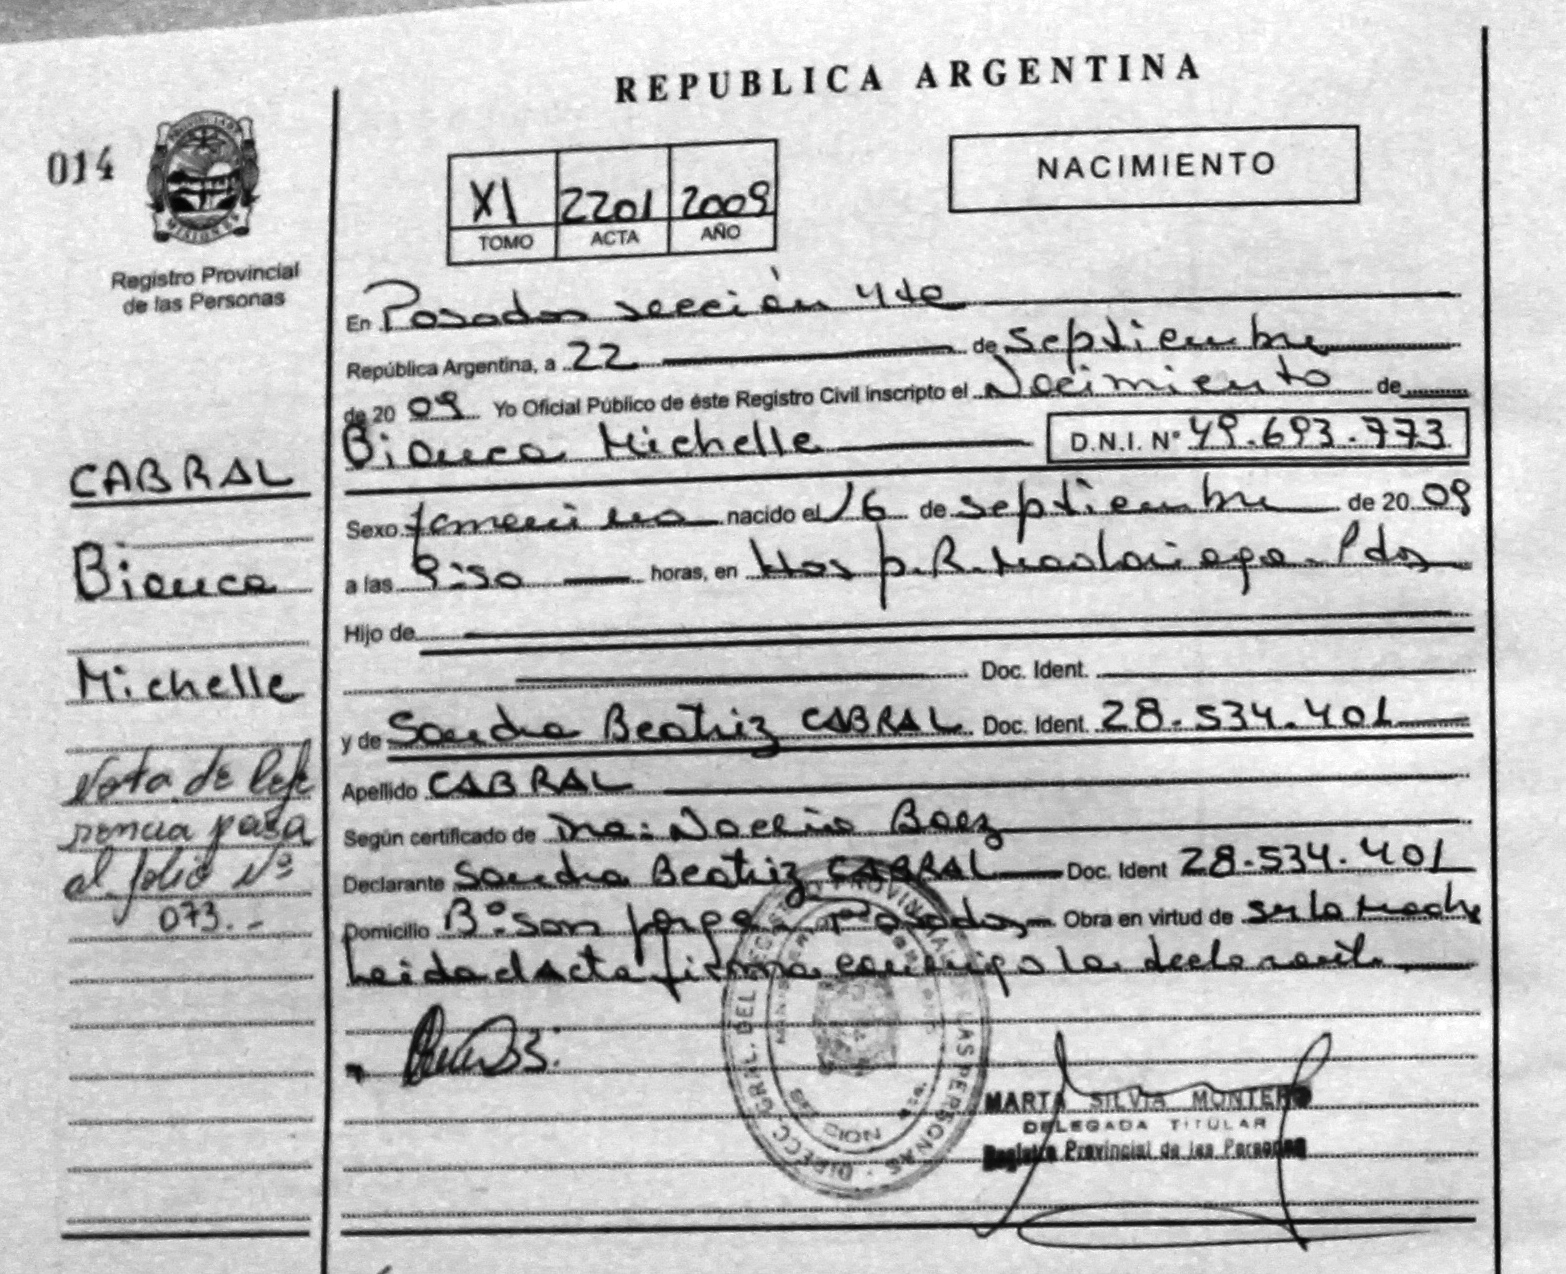 REPUBLICA ARGENTINA
014
PROVINCIA DE MISIONES
Registro Provincial
de las Personas
XI 2201 2009
TOMO ACTA AÑO
NACIMIENTO
En Posadas sección 4ta
República Argentina, a 22 de septiembre
de 2009 Yo Oficial Público de éste Registro Civil inscripto el Nacimiento de
Bianca Michelle D.N.I. Nº 49.693.773
Sexo femenino nacido el 16 de septiembre de 2009
a las 9:50 horas, en Hosp. R. Madariaga - Pdas
Hijo de
Doc. Ident.
y de Sandra Beatriz CABRAL Doc. Ident. 28.534.401
Apellido CABRAL
Según certificado de Dra: Noelia Baez
Declarante Sandra Beatriz CABRAL Doc. Ident 28.534.401
Domicilio Bº San Jorge - Posadas Obra en virtud de ser la madre
Leida el Acta firma conmigo la declarante
CABRAL
Bianca
Michelle
Nota de Refe
rencia pasa
al folio Nº
073.-
DIRECC. GRAL. DEL REGISTRO PROVINCIAL DE LAS PERSONAS
MARTA SILVIA MONTERO
DELEGADA TITULAR
Registro Provincial de las Personas